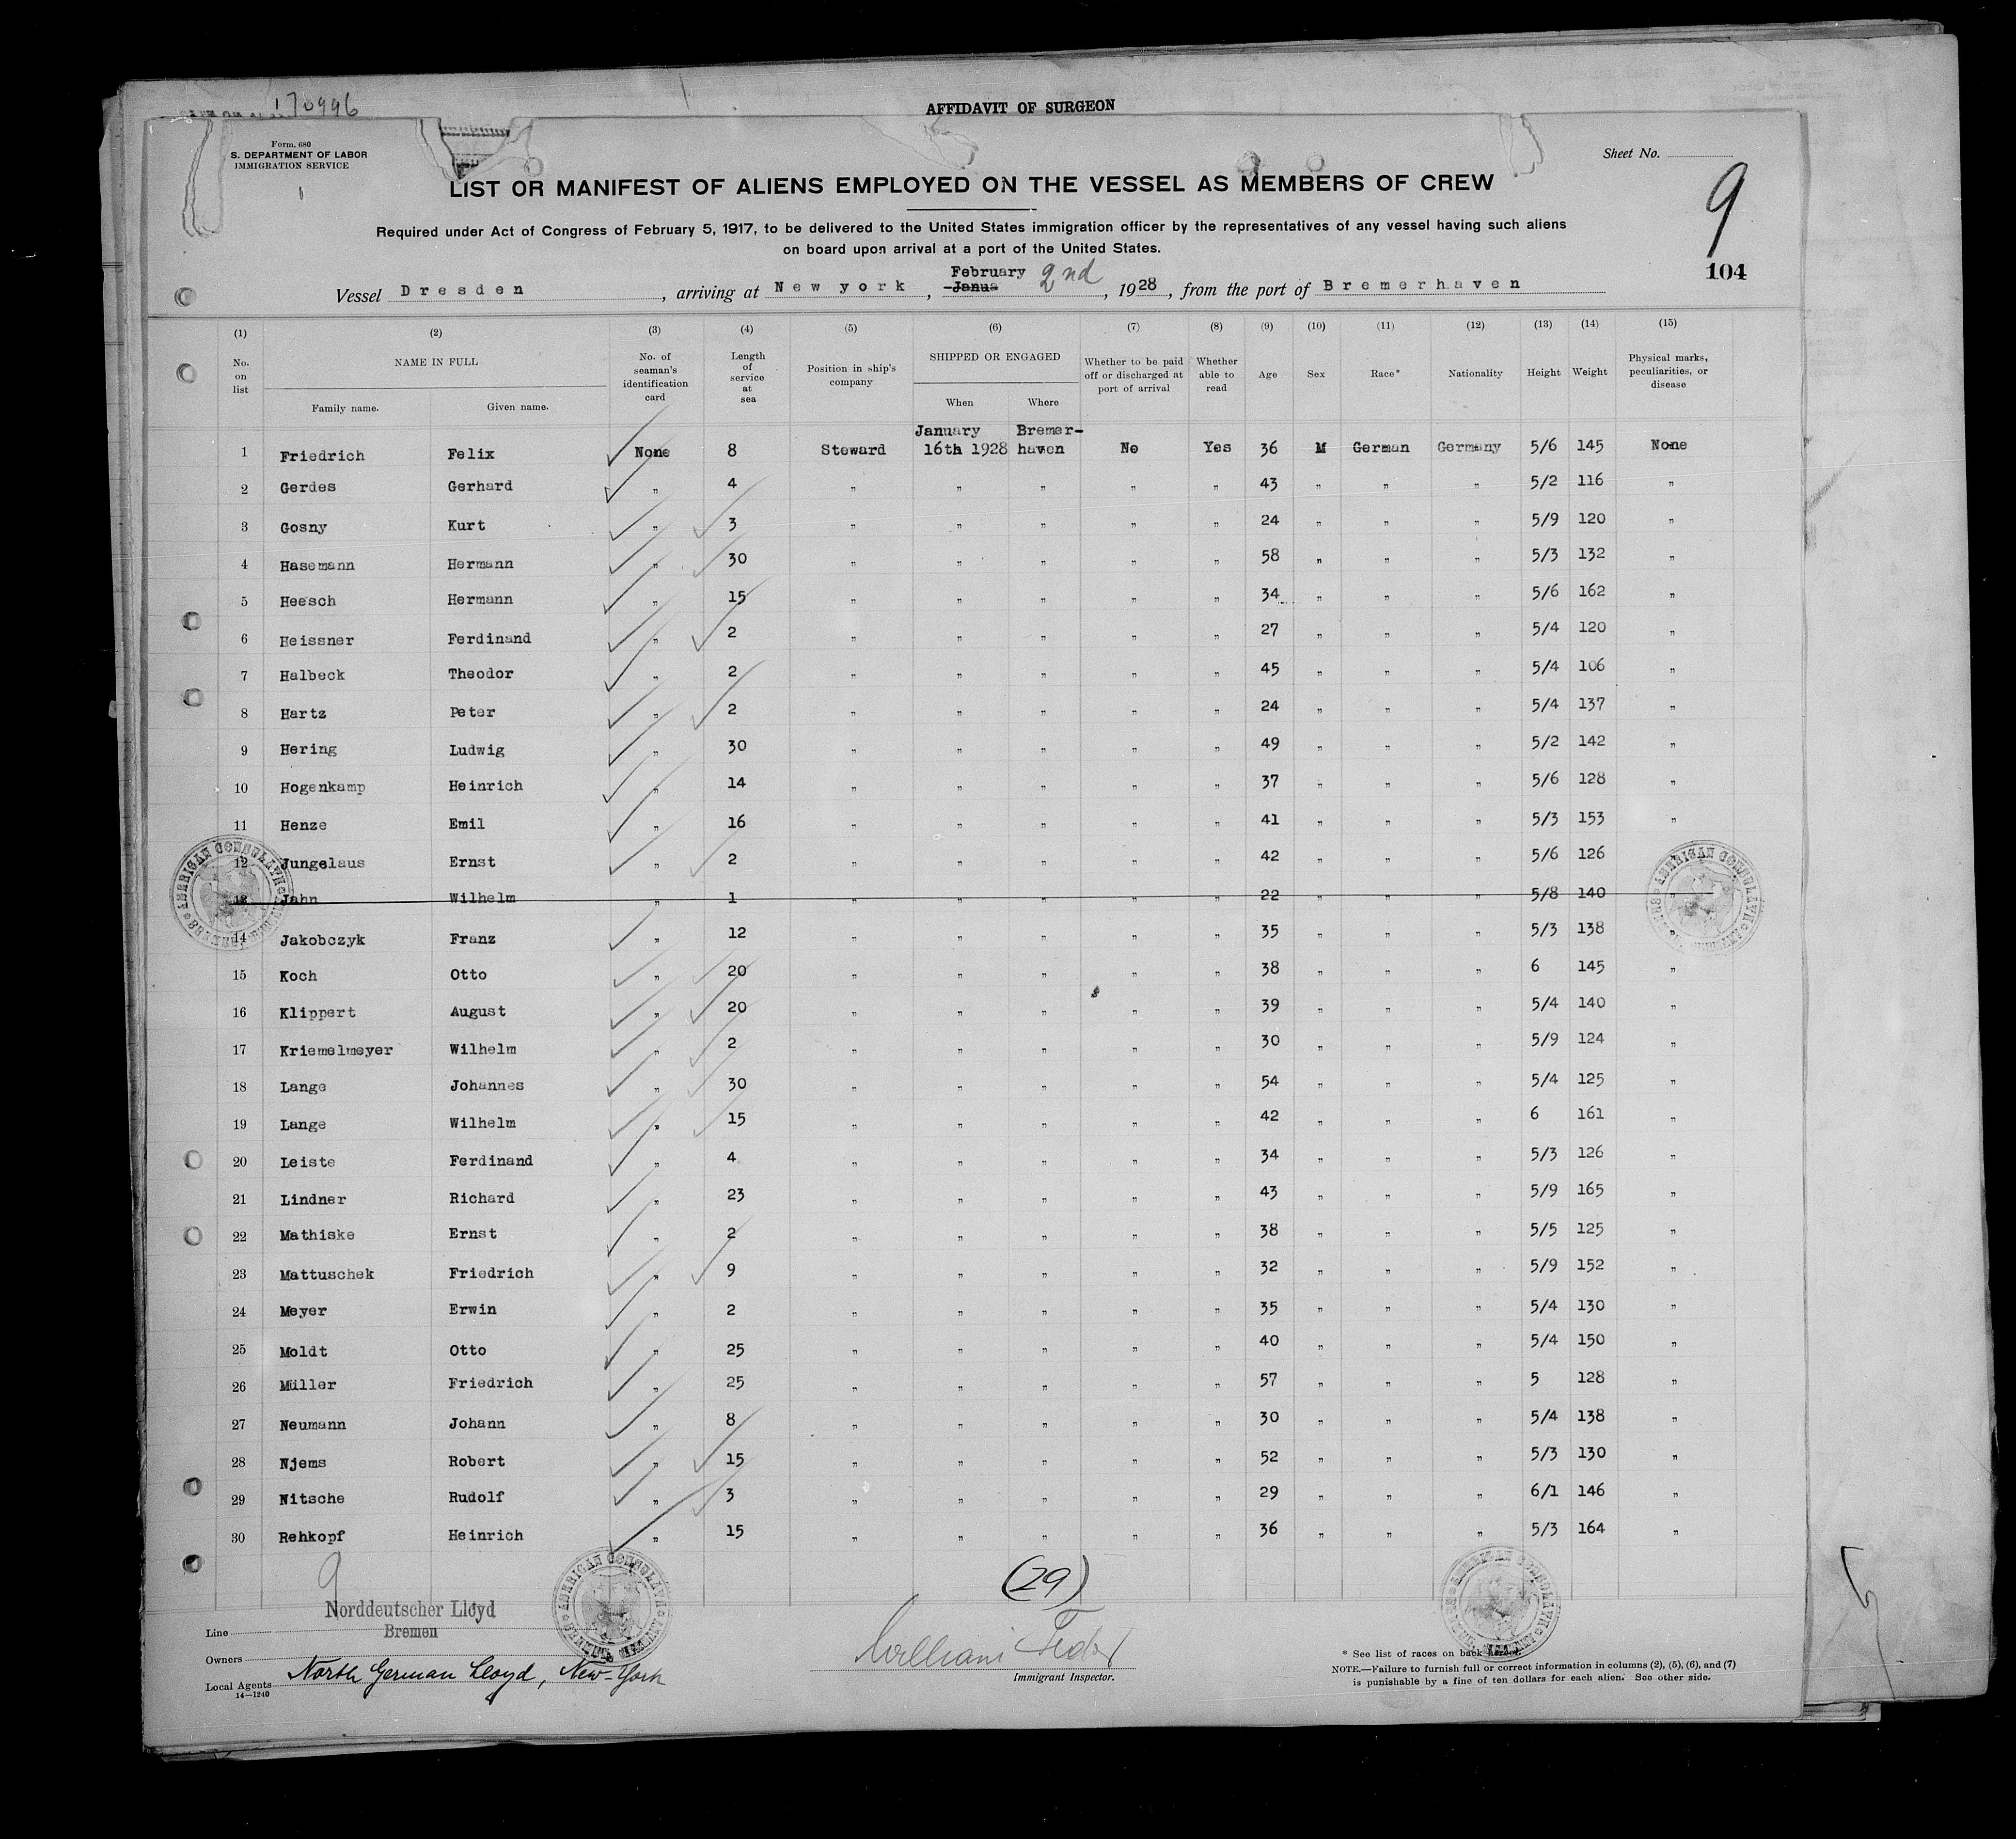 170996
AFFIDAVIT OF SURGEON
Form. 680
S. DEPARTMENT OF LABOR
IMMIGRATION SERVICE
Sheet No.
9
104
LIST OR MANIFEST OF ALIENS EMPLOYED ON THE VESSEL AS MEMBERS OF CREW
Required under Act of Congress of February 5, 1917, to be delivered to the United States immigration officer by the representatives of any vessel having such aliens
on board upon arrival at a port of the United States.
Vessel Dresden, arriving at New york, Janua February 2nd, 1928, from the port of Bremerhaven
(1) (2) (3) (4) (5) (6) (7) (8) (9) (10) (11) (12) (13) (14) (15)
No. on list NAME IN FULL Family name. Given name. No. of seaman's identification card Length of service at sea Position in ship's company SHIPPED OR ENGAGED When Where Whether to be paid off or discharged at port of arrival Whether able to read Age Sex Race* Nationality Height Weight Physical marks, peculiarities, or disease
1 Friedrich Felix None 8 Steward January 16th 1928 Bremer-haven No Yes 36 M German Germany 5/6 145 None
2 Gerdes Gerhard " 4 " " " " " 43 " " " 5/2 116 "
3 Gosny Kurt " 3 " " " " " 24 " " " 5/9 120 "
4 Hasemann Hermann " 30 " " " " " 58 " " " 5/3 132 "
5 Heesch Hermann " 15 " " " " " 34 " " " 5/6 162 "
6 Heissner Ferdinand " 2 " " " " " 27 " " " 5/4 120 "
7 Halbeck Theodor " 2 " " " " " 45 " " " 5/4 106 "
8 Hartz Peter " 2 " " " " " 24 " " " 5/4 137 "
9 Hering Ludwig " 30 " " " " " 49 " " " 5/2 142 "
10 Hogenkamp Heinrich " 14 " " " " " 37 " " " 5/6 128 "
11 Henze Emil " 16 " " " " " 41 " " " 5/3 153 "
12 Jungelaus Ernst " 2 " " " " " 42 " " " 5/6 126 "
13 Jahn Wilhelm " 1 " " " " " 22 " " " 5/8 140 "
14 Jakobczyk Franz " 12 " " " " " 35 " " " 5/3 138 "
15 Koch Otto " 20 " " " " " 38 " " " 6 145 "
16 Klippert August " 20 " " " " " 39 " " " 5/4 140 "
17 Kriemelmeyer Wilhelm " 2 " " " " " 30 " " " 5/9 124 "
18 Lange Johannes " 30 " " " " " 54 " " " 5/4 125 "
19 Lange Wilhelm " 15 " " " " " 42 " " " 6 161 "
20 Leiste Ferdinand " 4 " " " " " 34 " " " 5/3 126 "
21 Lindner Richard " 23 " " " " " 43 " " " 5/9 165 "
22 Mathiske Ernst " 2 " " " " " 38 " " " 5/5 125 "
23 Mattuschek Friedrich " 9 " " " " " 32 " " " 5/9 152 "
24 Meyer Erwin " 2 " " " " " 35 " " " 5/4 130 "
25 Moldt Otto " 25 " " " " " 40 " " " 5/4 150 "
26 Müller Friedrich " 25 " " " " " 57 " " " 5 128 "
27 Neumann Johann " 8 " " " " " 30 " " " 5/4 138 "
28 Njems Robert " 15 " " " " " 52 " " " 5/3 130 "
29 Nitsche Rudolf " 3 " " " " " 29 " " " 6/1 146 "
30 Rehkopf Heinrich " 15 " " " " " 36 " " " 5/3 164 "
9
(29)
Line Norddeutscher Lloyd
Bremen
Owners
Local Agents North German Lloyd, New-York
14—1240
William
Immigrant Inspector.
* See list of races on back
NOTE.—Failure to furnish full or correct information in columns (2), (5), (6), and (7)
is punishable by a fine of ten dollars for each alien. See other side.
AMERICAN CONSULATE
AMERICAN CONSULATE
AMERICAN CONSULATE
AMERICAN CONSULATE